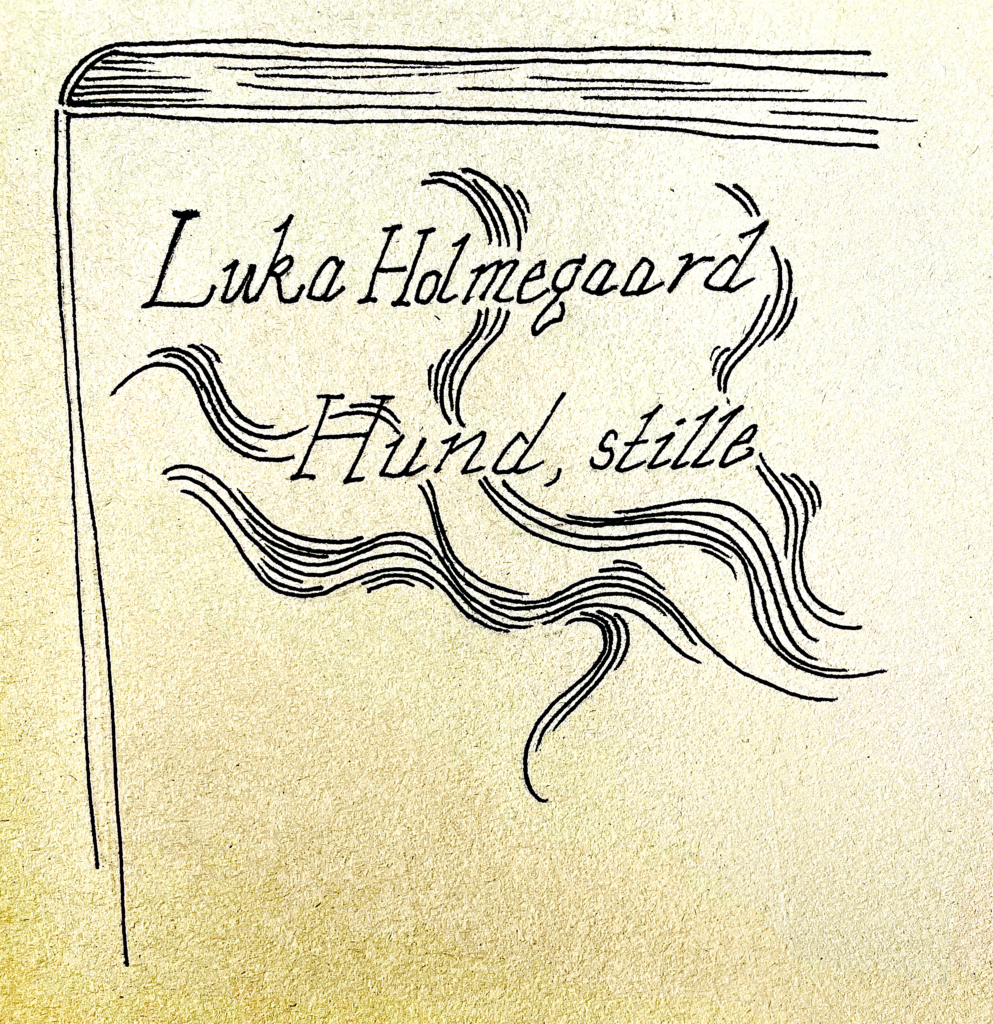 Luka Holmegaard
Hund, stille